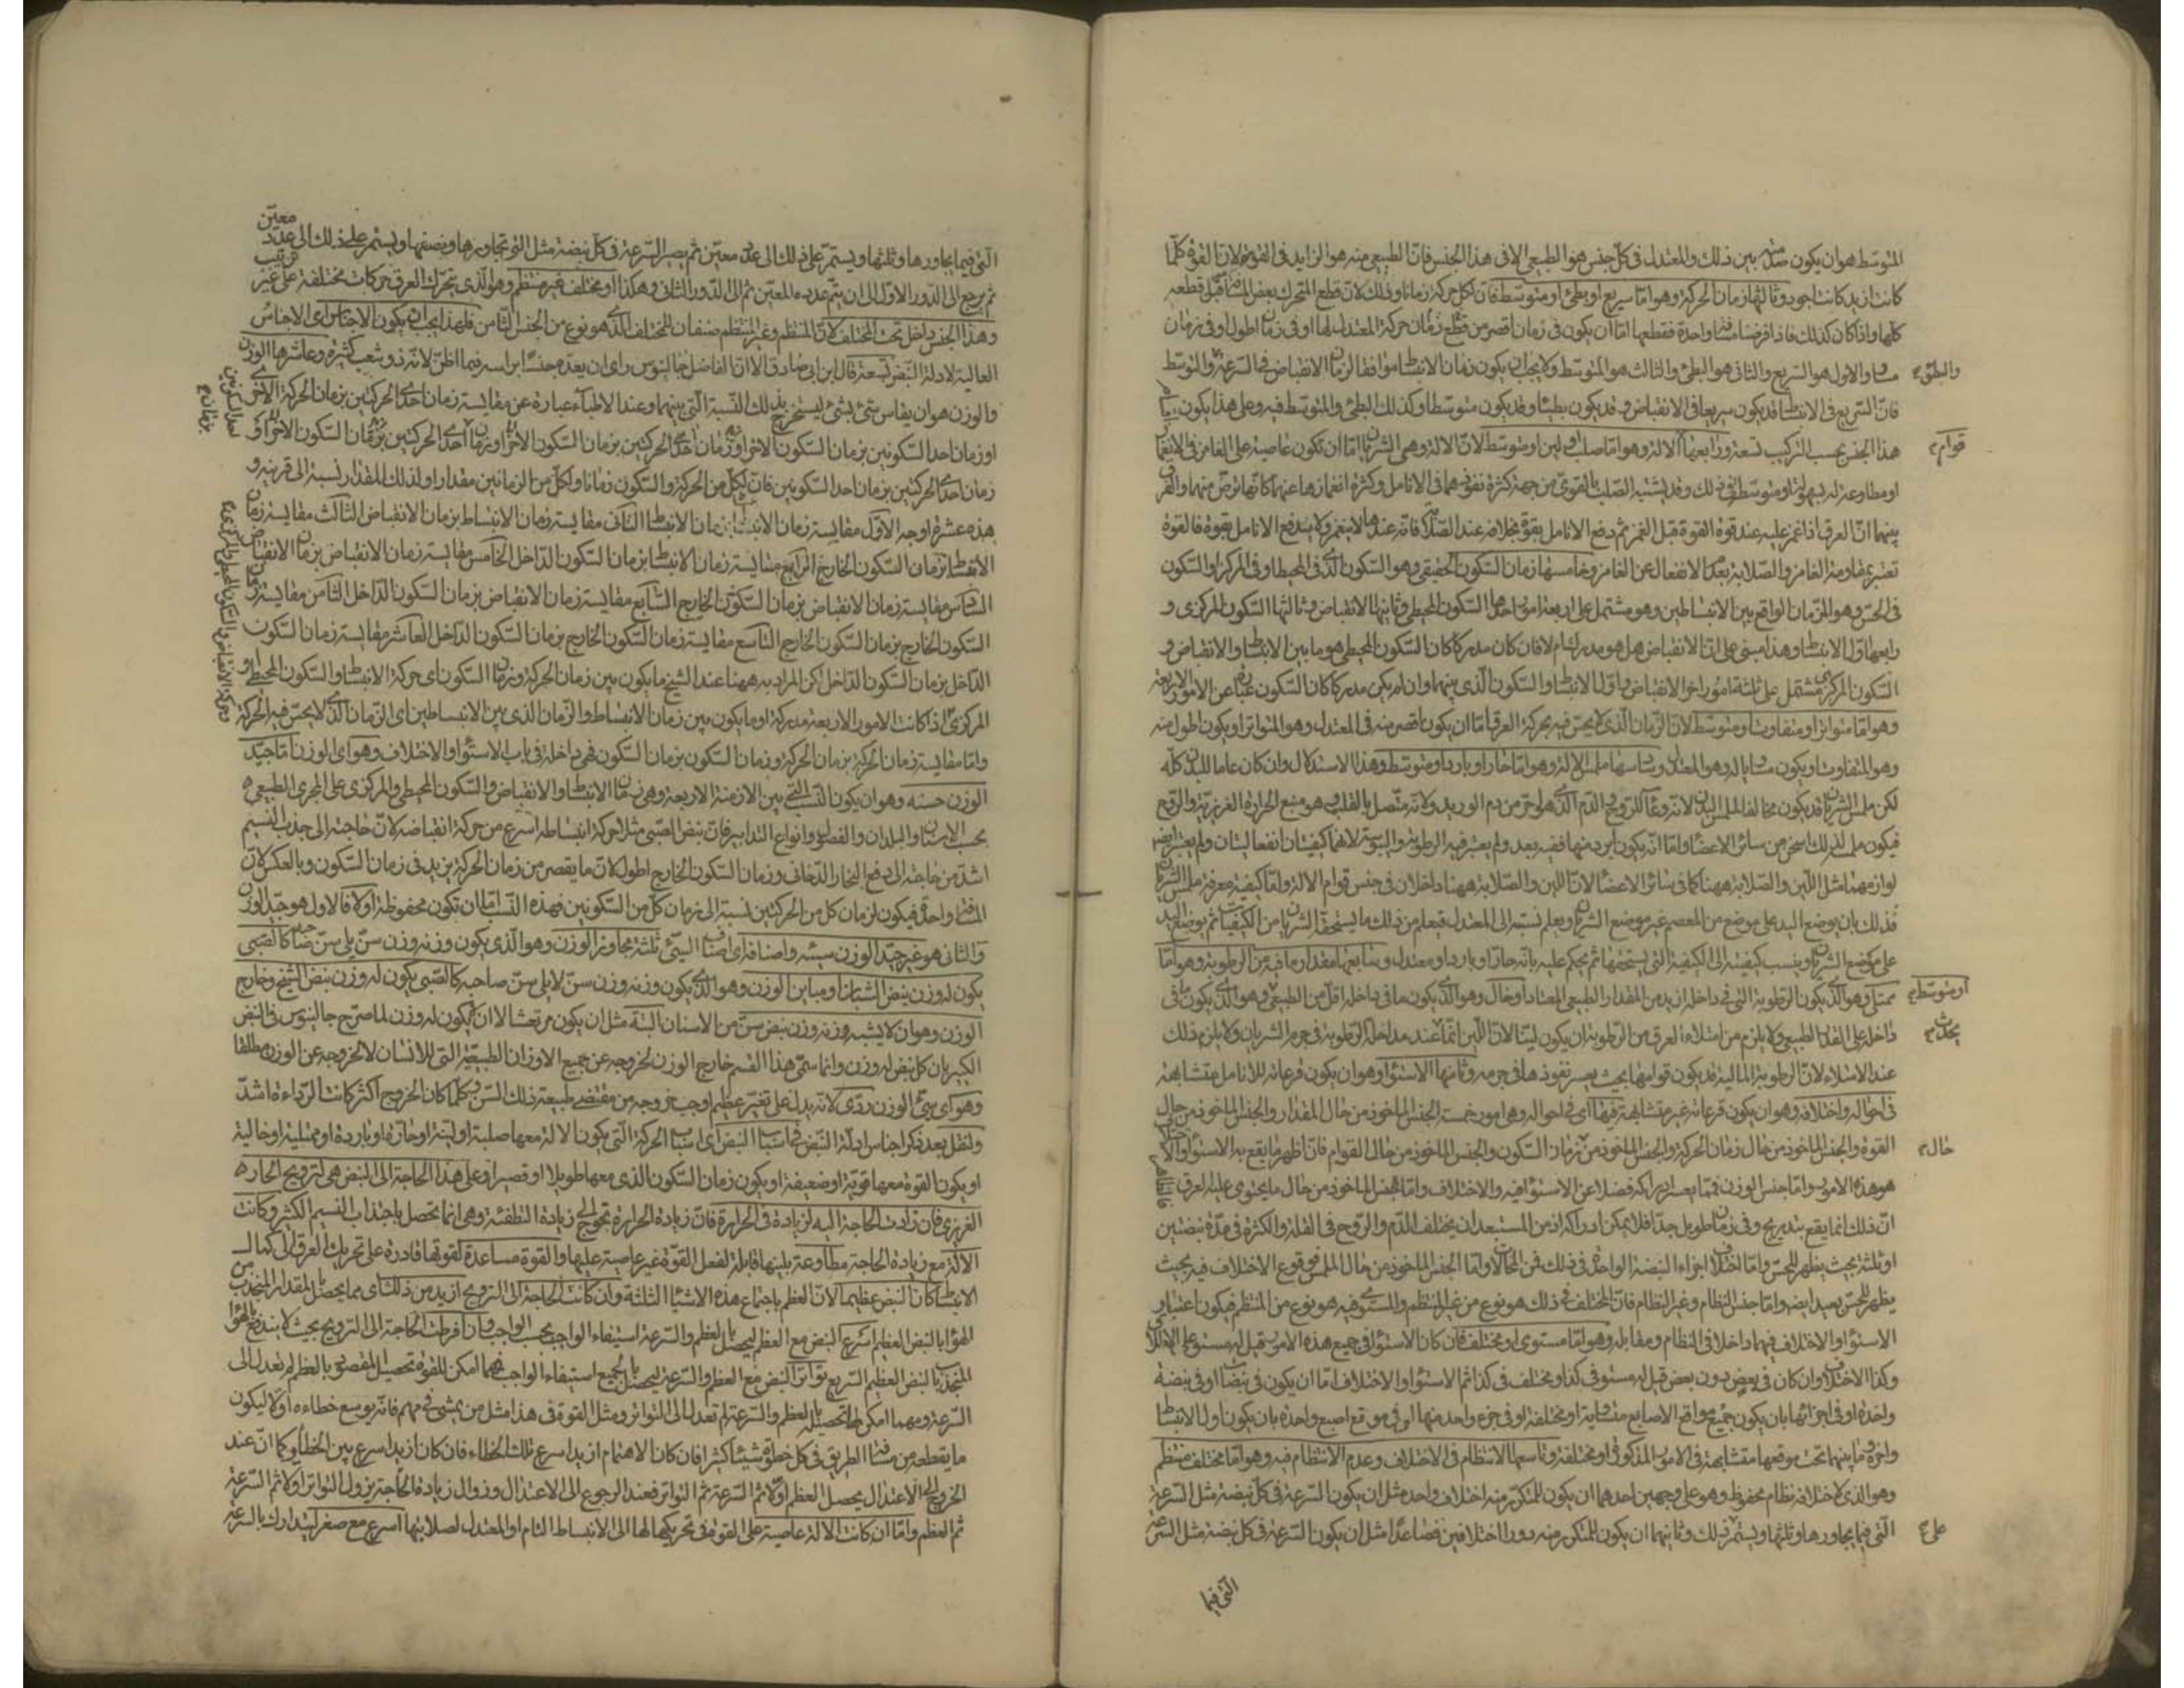 المتوسط هو ان يكون بين ذلك والمعتدل فى كل جنس هو الطبيعى الا فى هذا الجنس فان الطبيعى منه هو الزايد فى القوة لان القوة كلما
كانت ازيد كانت اجود وثالثها زمان الحركة وهو اما سريع او بطئ او متوسط فان لكل حركة زمانا وذلك لان قطع المتحرك بعض المسافة قبل قطعه
كلها واذا كان كذلك فاذا فرضنا مسافة واحدة فقطعها اما ان يكون فى زمان اقصر من قطع زمان حركة المعتدل لها او فى زمان اطول او فى زمان
مساو والاول هو السريع والثانى هو البطئ والثالث هو المتوسط ولا يجب ان يكون زمان الانبساط موافقا لزمان الانقباض فى السرعة والمتوسط
والبطؤ
فان السريع فى الانبساط قد يكون سريعا فى الانقباض وقد يكون بطيئا وقد يكون متوسطا وكذلك البطئ والمتوسط فيه وعلى هذا يكون
هذا الجنس بحسب التركيب تسعة ورابعها الالة وهو اما صلب او لين او متوسط لان الالة وهى الشريان اما ان تكون عاصية على الغامز فى الانغماز
قوام
او مطاوعة له بسهولة او متوسطة فى ذلك وقد يشتبه الصلب بالقوى من جهة كثرة نفوذهما فى الانامل وكثرة انغمازها عنهما كانها ترض منهما والفرق
بينهما ان العرق اذا غمز عليه عند قوة القوة قبل الغمز ثم دفع الانامل بقوة بخلافه عند الصلابة فانه عندها لا ينغمز ولا يدفع الانامل بقوة فالقوة
تعتبر بمقاومة الغامز والصلابة بعد الانفعال عن الغامز وخامسها زمان السكون الحقيقى وهو السكون الذى فى المحيط او فى المركز او السكون
فى الحس وهو الزمان الواقع بين الانبساطين وهو مشتمل على اربعة امور احدها السكون المحيطى وثانيها الانقباض وثالثها السكون المركزى و
رابعها اول الانبساط وهذا مبنى على ان الانقباض هل هو مدرك ام لا فان كان مدركا كان السكون المحيطى هو ما بين الانبساط والانقباض و
السكون المركزى مشتمل على ثلثة امور اخر الانقباض واول الانبساط والسكون الذى بينهما وان لم يكن مدركا كان السكون عبارة عن الامور الاربعة
وهو اما متواتر او متفاوت او متوسط لان الزمان الذى لا يحس فيه بحركة العرق اما ان يكون اقصر منه فى المعتدل وهو المتواتر او يكون اطول منه
وهو المتفاوت او يكون مساويا له وهو المعتدل وسادسها ملمس الالة وهو اما حار او بارد او متوسط وهذا الاستدلال وان كان عاما للبدن كله
لكن ملمس الشريان قد يكون مخالفا لملمس البدن لانه وعاء للروح والدم الذى هو احر من دم الوريد ولانه متصل بالقلب وهو منبع الحرارة الغريزية والروح
فيكون ملمسه لذلك اسخن من سائر الاعضاء واما انه يكون ابرد منها ففيه بعد ولم يعتبر فيه الرطوبة واليبوسة لانهما كيفيتان انفعاليتان ولم يعتبر ايضا
لوازمهما مثل اللين والصلابة ههنا كما فى سائر الاعضاء لان اللين والصلابة ههنا داخلان فى جنس قوام الالة واما كيفية معرفة ملمس الشريان
فذلك بان يوضع اليد على موضع من المعصم غير موضع الشريان ويعلم نسبته الى المعتدل فيعلم من ذلك ما يستحقه الشريان من الكيفيات ثم يوضع اليد
على موضع الشريان وينسب كيفيته الى الكيفية التى يستحقها ثم يحكم عليه بانه حار او بارد او معتدل وسابعها مقدار ما فيه من الرطوبة وهو اما
ممتلى وهو الذى يكون الرطوبة التى فى داخله ازيد من المقدار الطبيعى المعتاد او خال وهو الذى يكون ما فى داخله اقل من الطبيعى وهو الذى يكون ما فى
او متوسط
داخله على القدر الطبيعى ولا يلزم من امتلاء العرق من الرطوبة ان يكون لينا لان اللين انما عند مداخلة الرطوبة فى جرم الشريان ولا يلزم ذلك
يحدث
عند الامتلاء لان الرطوبة المالية قد يكون قوامها بحيث يعسر نفوذها فى جرمه وثامنها الاستواء وهو ان يكون قرعاته للانامل متشابهة
فى احواله واختلافه وهو ان يكون قرعاته غير متشابهة فيها اى فى احواله وهى امور خمسة الجنس الماخوذ من حال المقدار والجنس الماخوذ من حال
القوة والجنس الماخوذ من حال زمان الحركة والجنس الماخوذ من زمان السكون والجنس الماخوذ من حال القوام فان اظهر ما يقع به الاستواء والاختلاف
حال
هو هذه الامور واما جنس الوزن فمما يعسر ادراكه فضلا عن الاستواء فيه والاختلاف واما الجنس الماخوذ من حال ما يحتوى عليه العرق
ان ذلك انما يقع بتدريج وفى زمان طويل جدا فلا يمكن ادراكه اذ من المستبعد ان يختلف الدم والروح فى القلة والكثرة فى مدة نبضتين
او ثلثة بحيث يظهر للحس واما اختلاف اجزاء النبضة الواحدة فى ذلك فمن المحالات واما الجنس الماخوذ من حال الملمس فوقوع الاختلاف فيه بحيث
يظهر للحس بعيد ايضا واما جنس النظام وغير النظام فان المختلف فى ذلك هو نوع من غير المنتظم والمستوى فيه هو نوع من المنتظم فيكون اعتبار
الاستواء والاختلاف فيهما داخلا فى النظام ومقابله وهو اما مستوى او مختلف فان كان الاستواء فى جميع هذه الامور قيل له مستو على الاطلاق
وكذا الاختلاف وان كان فى بعض دون بعض قيل له مستو فى كذا ومختلف فى كذا ثم الاستواء والاختلاف اما ان يكون فى نبضات او فى نبضة
واحدة او فى اجزائها بان يكون جميع مواقع الاصابع متساوية او مختلفة او فى جزء واحد منها اى فى موقع اصبع واحدة بان يكون اول الانبساط
واخره وما بينهما تحت موقعها متشابهة فى الامور المذكورة او مختلفة وتاسعها الانتظام فى الاختلاف وعدم الانتظام فيه وهو اما مختلف منتظم
وهو الذى لاختلافه نظام محفوظ وهو على وجهين احدهما ان يكون للمتكرر منه اختلاف واحد مثل ان يكون السرعة فى كل نبضة مثل السرعة
التى فيما يجاورها وثلثها ويستمر ذلك وثانيهما ان يكون للمتكرر منه دور اختلافين فصاعدا مثل ان يكون السرعة فى كل نبضة مثل السرعة
على
التى فيما
التى فيما يجاورها وثلثها ويستمر على ذلك الى عدد معين ثم يصير السرعة فى كل نبضة مثل التى تجاورها ونصفها ويستمر على ذلك الى عدد معين
ثم يرجع الى الدور الاول الى ان يتم عدده المعين ثم الى الدور الثانى وهكذا او مختلف غير منتظم وهو الذى يتحرك العرق حركات مختلفة على غير ترتيب
وهذا الجنس داخل تحت المختلف لان المنتظم وغير المنتظم صنفان للمختلف الذى هو نوع من الجنس الثامن فلهذا يجب ان يكون الاجناس اى الاجناس
العالية لادلة النبض تسعة قال ابن ابى صادق الا ان الفاضل جالينوس راى ان يعده جنسا براسه فيما اظن لانه ذو شعب كثيرة وعاشرها الوزن
والوزن هو ان يقاس شئ بشئ ليستخرج بذلك النسبة التى بينهما وعند الاطباء عبارة عن مقايسة زمان احدى الحركتين بزمان الحركة الاخرى
او زمان احد السكونين بزمان السكون الاخر او زمان احدى الحركتين بزمان السكون الاخر او زمان احدى الحركتين بزمان السكون الاخر او
زمان احدى الحركتين بزمان احد السكونين فان لكل من الحركة والسكون زمانا ولكل من الزمانين مقدارا ولذلك المقدار نسبة الى قرينه و
هذه عشرة اوجه الاول مقايسة زمان الانبساط بزمان الانبساط الثانى مقايسة زمان الانبساط بزمان الانقباض الثالث مقايسة زمان
الانبساط بزمان السكون الخارج الرابع مقايسة زمان الانبساط بزمان السكون الداخل الخامس مقايسة زمان الانقباض بزمان الانقباض
السادس مقايسة زمان الانقباض بزمان السكون الخارج السابع مقايسة زمان الانقباض بزمان السكون الداخل الثامن مقايسة زمان
السكون الخارج بزمان السكون الخارج التاسع مقايسة زمان السكون الخارج بزمان السكون الداخل العاشر مقايسة زمان السكون
الداخل بزمان السكون الداخل لكن المراد به ههنا عند الشيخ ما يكون بين زمان الحركة وزمان السكون اى حركة الانبساط والسكون المحيطى او
المركزى اذا كانت الامور الاربعة مدركة او ما يكون بين زمان الانبساط والزمان الذى بين الانبساطين اى الزمان الذى لا يحس فيه الحركة
واما مقايسة زمان الحركة بزمان الحركة وزمان السكون بزمان السكون فهى داخلة فى باب الاستواء والاختلاف وهو اى الوزن اما جيد
الوزن حسنه وهو ان يكون النسب التى بين الازمنة الاربعة وهى زمان الانبساط والانقباض والسكون المحيطى والمركزى على المجرى الطبيعى
بحسب الاسنان والبلدان والفصول وانواع التدابير فان نبض الصبى مثلا حركة انبساطه اسرع من حركة انقباضه لان حاجته الى جذب النسيم
اشد من حاجته الى دفع البخار الدخانى وزمان السكون الخارج اطول لان ما يقصر من زمان الحركة يزيد فى زمان السكون وبالعكس لان
المسافة واحدة فيكون لزمان كل من الحركتين نسبة الى زمان كل من السكونين فهذه النسب اما ان تكون محفوظة اولا فالاول هو جيد الوزن
والثانى هو غير جيد الوزن سيئه واصنافه اى اصناف السيئ ثلثة مجاوز الوزن وهو الذى يكون وزنه وزن سن يلى سن صاحبه كالصبى
يكون له وزن نبض الشبان او مباين الوزن وهو الذى يكون وزنه وزن سن لا يلى سن صاحبه كالصبى يكون له وزن نبض الشيخ وخارج
الوزن وهو ان لا يشبه وزنه وزن نبض سن من الاسنان البتة مثل ان يكون مرتعشا لا ان لا يكون له وزن لما صرح جالينوس فى النبض
الكبير بان كل نبض له وزن وانما سمى هذا القسم خارج الوزن لخروجه عن جميع الاوزان الطبيعية التى للانسان لا لخروجه عن الوزن مطلقا
وهو اى سيئ الوزن ردى لانه يدل على تغير عظيم اوجب خروجه من مقتضى طبيعة ذلك السن وكلما كان الخروج اكثر كانت الرداءة اشد
ولنقل بعد ذكر اجناس ادلة النبض فى اسباب النبض اى اسباب الحركة التى يكون الالة معها صلبة او لينة او حارة او باردة او ممتلية او خالية
او يكون القوة معها قوية او ضعيفة او يكون زمان السكون الذى معها طويلا او قصيرا وعلى هذا الحاجة الى النبض هى لترويح الحار
الغريزى فان زادت الحاجة اليه لزيادة فى الحرارة فان زيادة الحرارة تحوج الى زيادة التطفئة وهى انما تحصل باجتذاب النسيم الكثير وكانت
الالة مع زيادة الحاجة مطاوعة بلينها قابلة لفعل القوة غير عاصية عليها والقوة مساعدة لقوتها قادرة على تحريك العرق الى كمال
الانبساط كان النبض عظيما لان العظم باجتماع هذه الاشياء الثلثة وان كانت الحاجة الى الترويح ازيد من ذلك اى مما يحصل بالمقدار المنجذب من
الهواء بالنبض العظيم اسرع النبض مع العظم ليحصل بالعظم والسرعة استيفاء الواجب بحسب الواجب وان افرطت الحاجة الى الترويح بحيث لا يندفع بالهواء
المنجذب بالنبض العظيم السريع تواتر النبض مع العظم والسرعة ليحصل بالجميع استيفاء الواجب فمهما امكن للقوة تحصيل المقصود بالعظم لم تعدل الى
السرعة ومهما امكن لها تحصيله بالعظم والسرعة لم تعدل الى التواتر ومثل القوة فى هذا مثل من يمشى فى مهم فانه يوسع خطاه اولا ليكون
ما يقطعه من مسافة الطريق فى كل خطوة شيئا كثيرا فان كان الاهتمام ازيد اسرع تلك الخطاء فان كان ازيد اسرع بين الخطاء وكما ان عند
الخروج الى الاعتدال يحصل العظم اولا ثم السرعة ثم التواتر فعند الرجوع الى الاعتدال وزوال زيادة الحاجة يزول التواتر اولا ثم السرعة
ثم العظم واما ان كانت الالة عاصية على القوة فى تحريكها لها الى الانبساط التام او المعتدل لصلابتها اسرع مع صغر ليتدارك بالسرعة